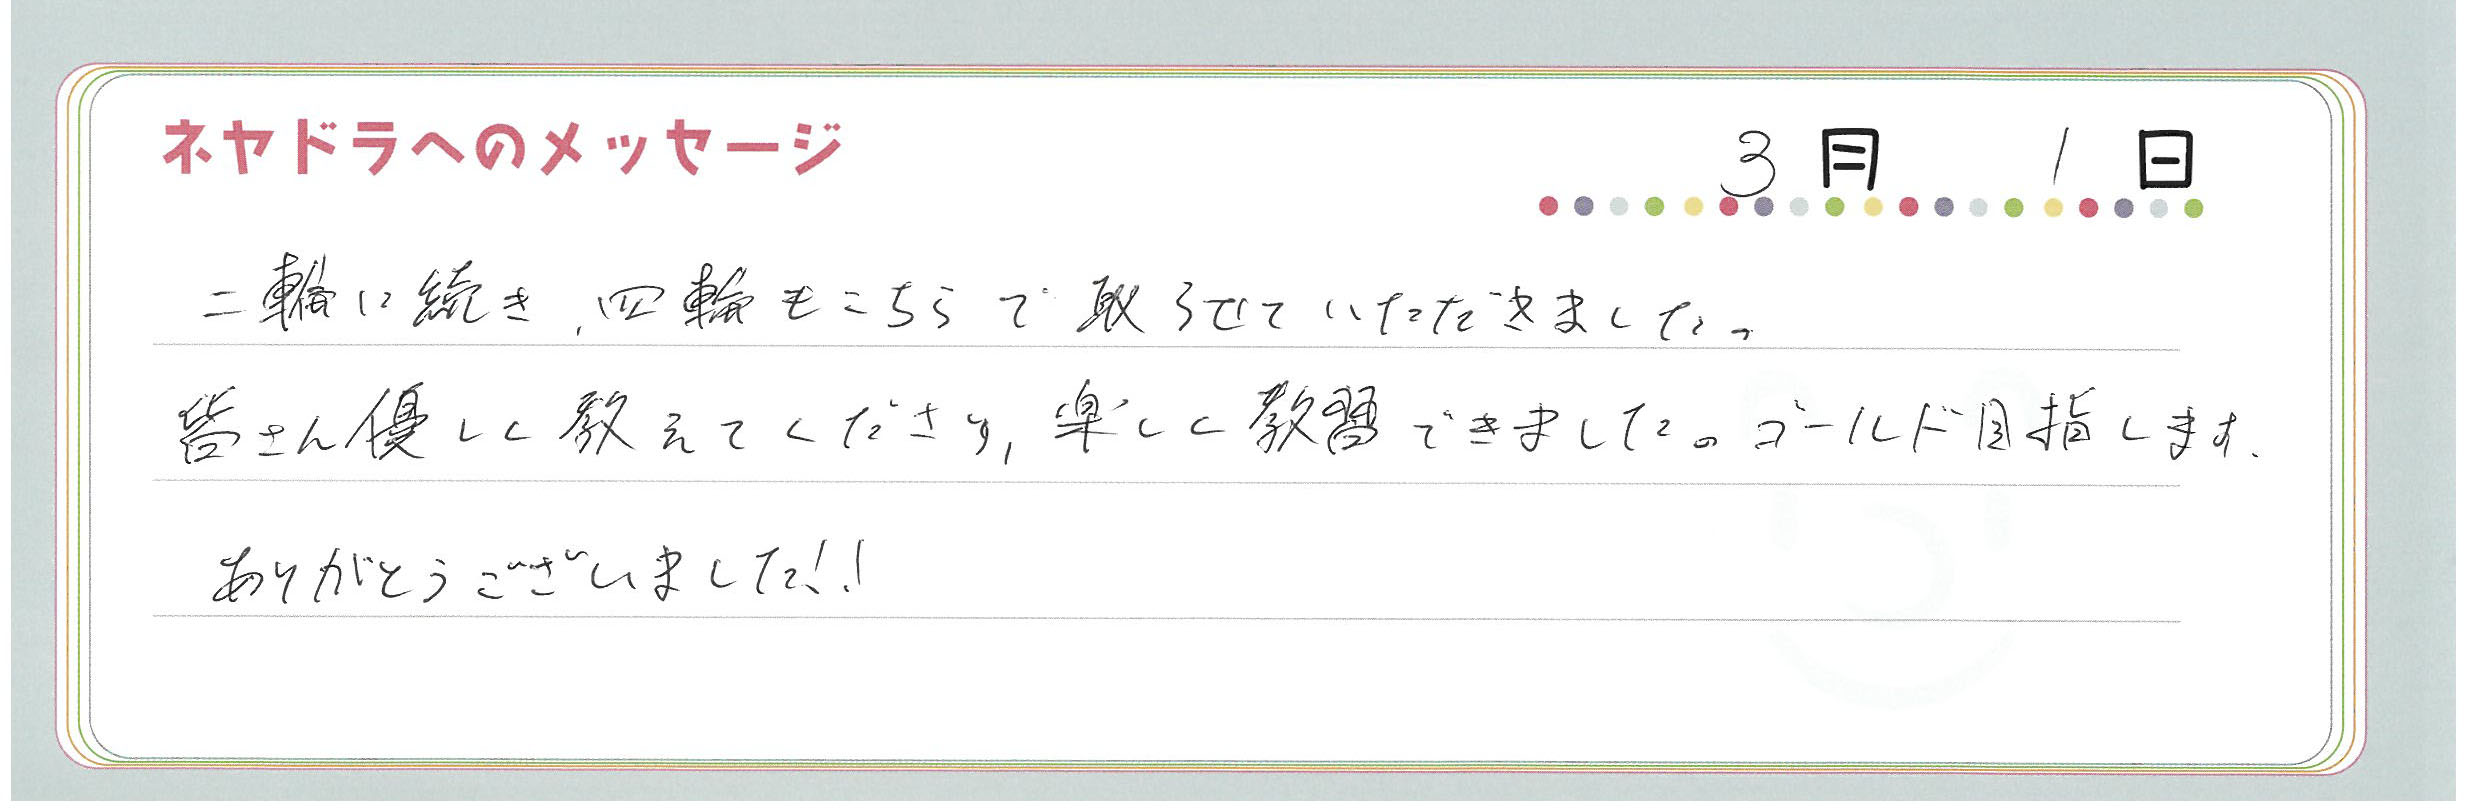 ネヤドラへのメッセージ
3月 1日
二輪に続き、四輪もこちらで取らせていただきました。
皆さん優しく教えてくださり、楽しく教習できました。ゴールド目指します.
ありがとうございました!!